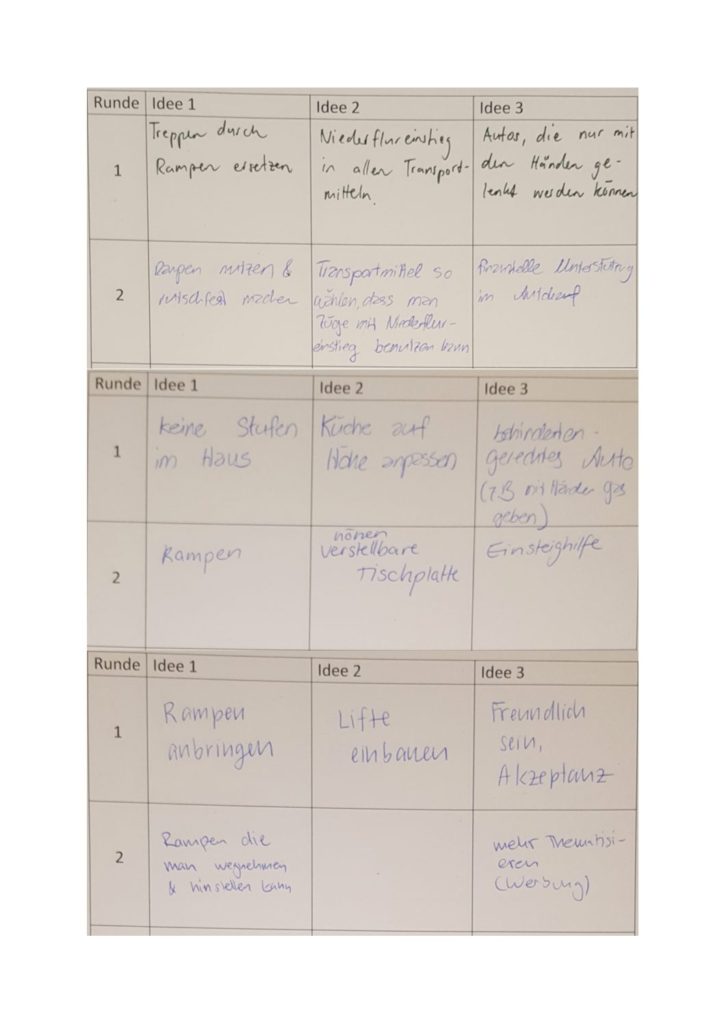 Runde Idee 1 Idee 2 Idee 3
1
Treppen durch
Rampen ersetzen
Niederflureinstieg
in allen Transport-
mitteln.
Autos, die nur mit
den Händen ge-
lenkt werden können
2
Rampen nutzen &
rutschfest machen
Transportmittel so
wählen, dass man
Züge mit Niederflur-
einstieg benutzen kann
finanzielle Unterstützung
im
Runde Idee 1 Idee 2 Idee 3
1
keine Stufen
im Haus
Küche auf
Höhe anpassen
behinderten-
gerechtes Auto
(z.B mit Händen gas
geben)
2
Rampen
höhen
verstellbare
Tischplatte
Einsteighilfe
Runde Idee 1 Idee 2 Idee 3
1
Rampen
anbringen
Lifte
einbauen
Freundlich
sein,
Akzeptanz
2
Rampen die
man wegnehmen
& hinstellen kann
mehr Thematisi-
eren
(Werbung)